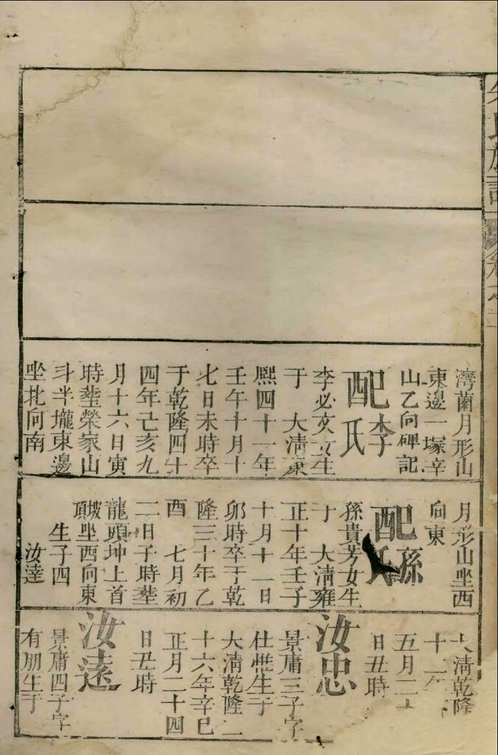 灣蘭月形山
東邊一塚辛
山乙向碑記
配李氏
李必 女生
于 大清康
熙四十一年
壬午十月十
七日未時卒
于乾隆四十
四年己亥九
月十六日寅
時塟榮家山
斗半壠東邊
坐北向南
月形山坐酉
向東
配孫氏
孫貴芳女生
于 大清雍
正十年壬子
十月十一日
卯時卒于乾
隆三十年乙
酉 七月初
二日子時塟
龍頭坤上首
坐酉向東
生子四
汝達
大清乾隆
五月二
日丑時
汝忠
景庸三子字
仕 生于
大清乾隆二
十六年辛巳
正月二十四
日丑時
汝遠
景庸四子字
有朋生于